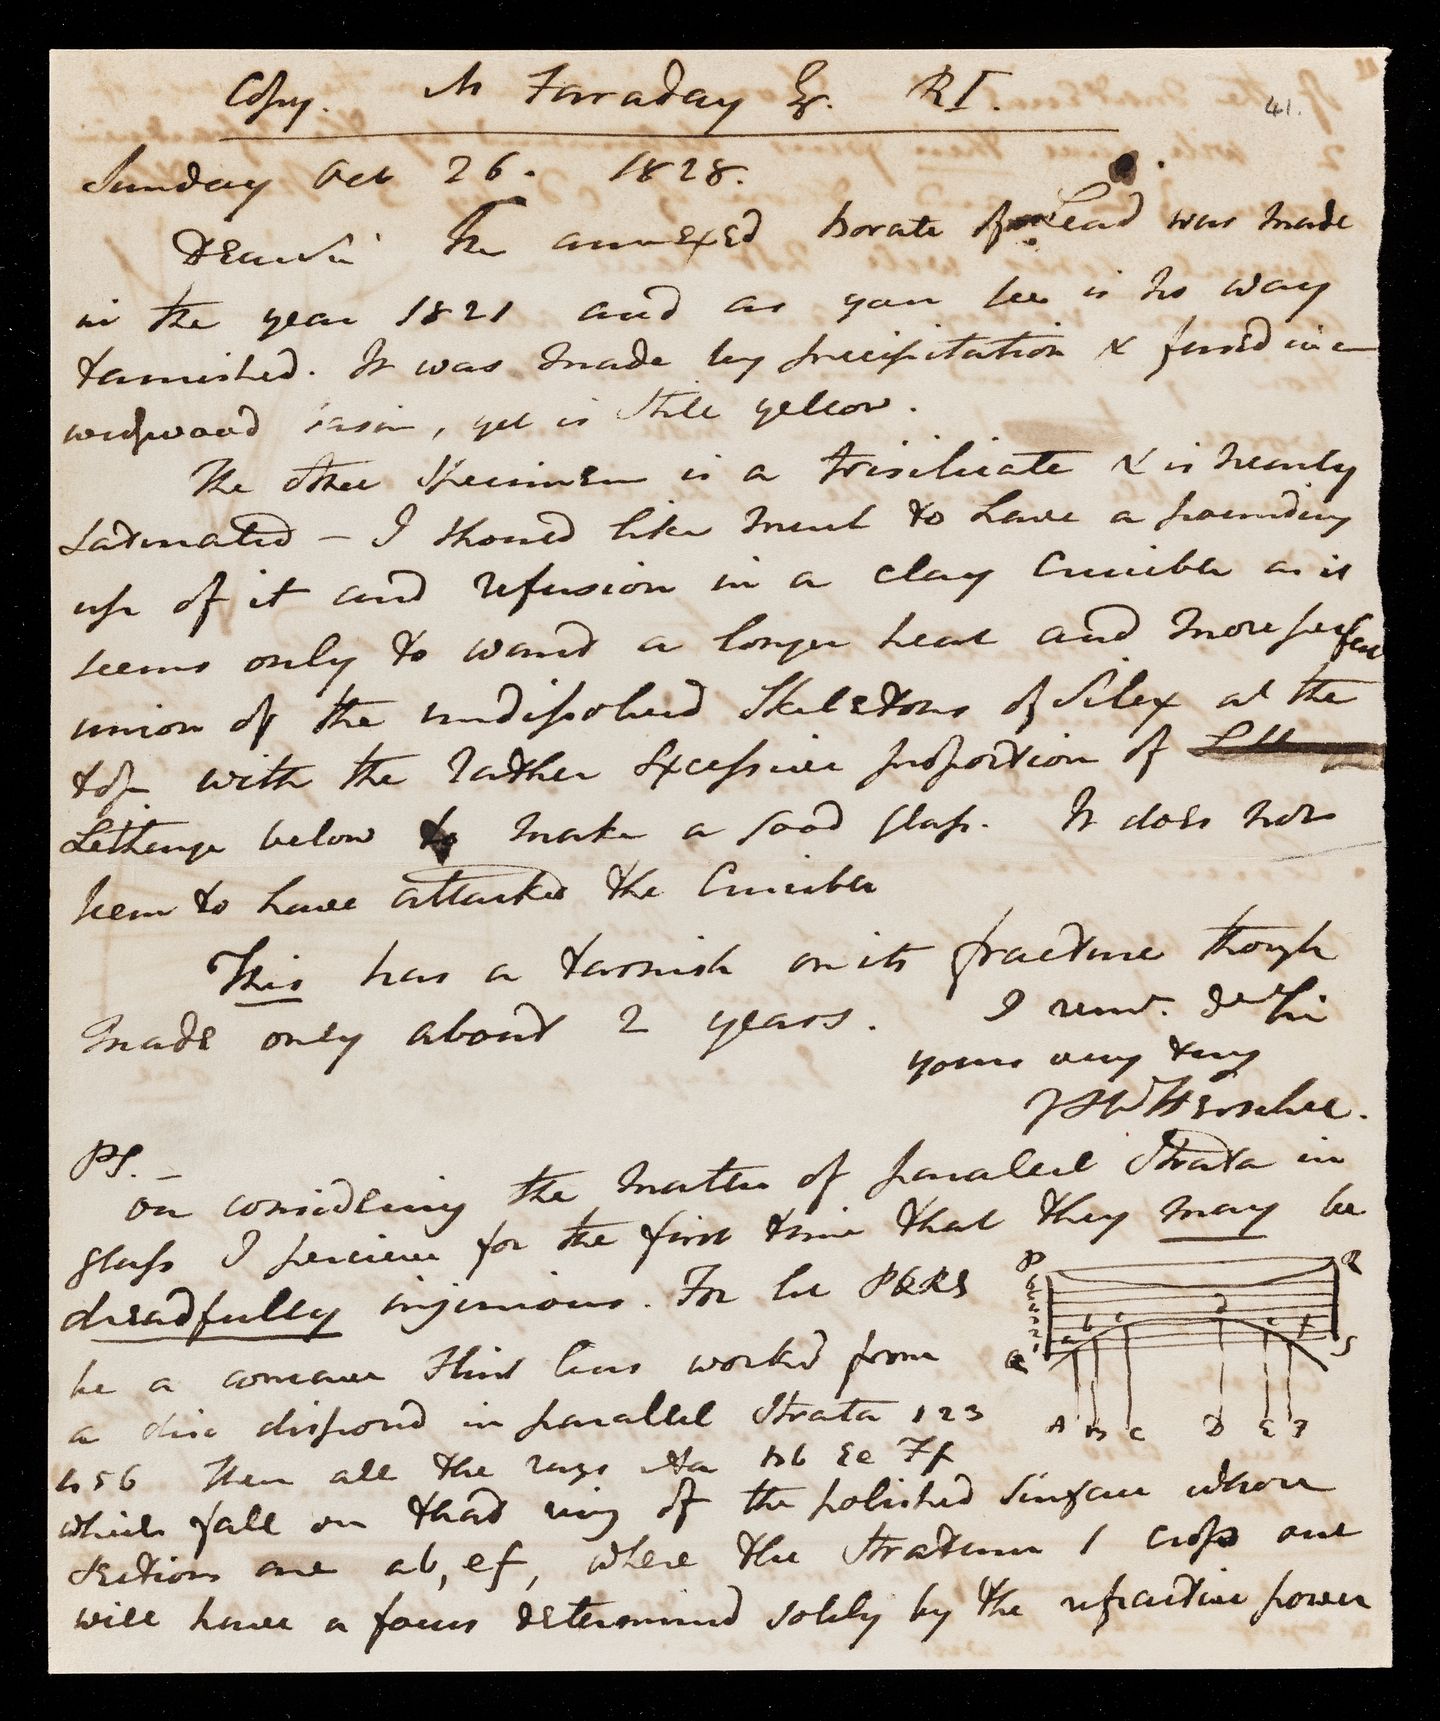 Copy. M Faraday Esq. RI.
41.
Sunday Oct 26. 1828.
Dear Sir The annexed borate of Lead was made
in the year 1821 and as you see is no way
tarnished. It was made by precipitation & fused in a
wedgwood basin, yet is still yellow.
The other specimen is a trisilicate & is nearly
saturated – I should like much to have a pounding
up of it and refusion in a clay crucible as it
seems only to want a longer heat and more perfect
union of the undissolved skeletons of Silex at the
top with the rather excessive proportion of
Litharge below to make a good glass. It does not
seem to have attacked the Crucible
This has a tarnish on its fracture though
made only about 2 years. I remn. dear Sir
yours very truly
JFW Herschel.
PS. –
On considering the matter of parallel Strata in
glass I perceive for the first time that they may be
dreadfully injurious. For let PQRS
be a concave Flint lens worked from
a disc disposed in parallel Strata 1 2 3
4 5 6 Then all the rays Aa Bb Ee Ff
which fall on that ring of the polished surface whose
sections are ab, ef, where the Stratum 1 crops out
will have a focus determined solely by the refractive power
P R
6 5 4 3 2 1
a b c d e f
Q S
A B C D E F